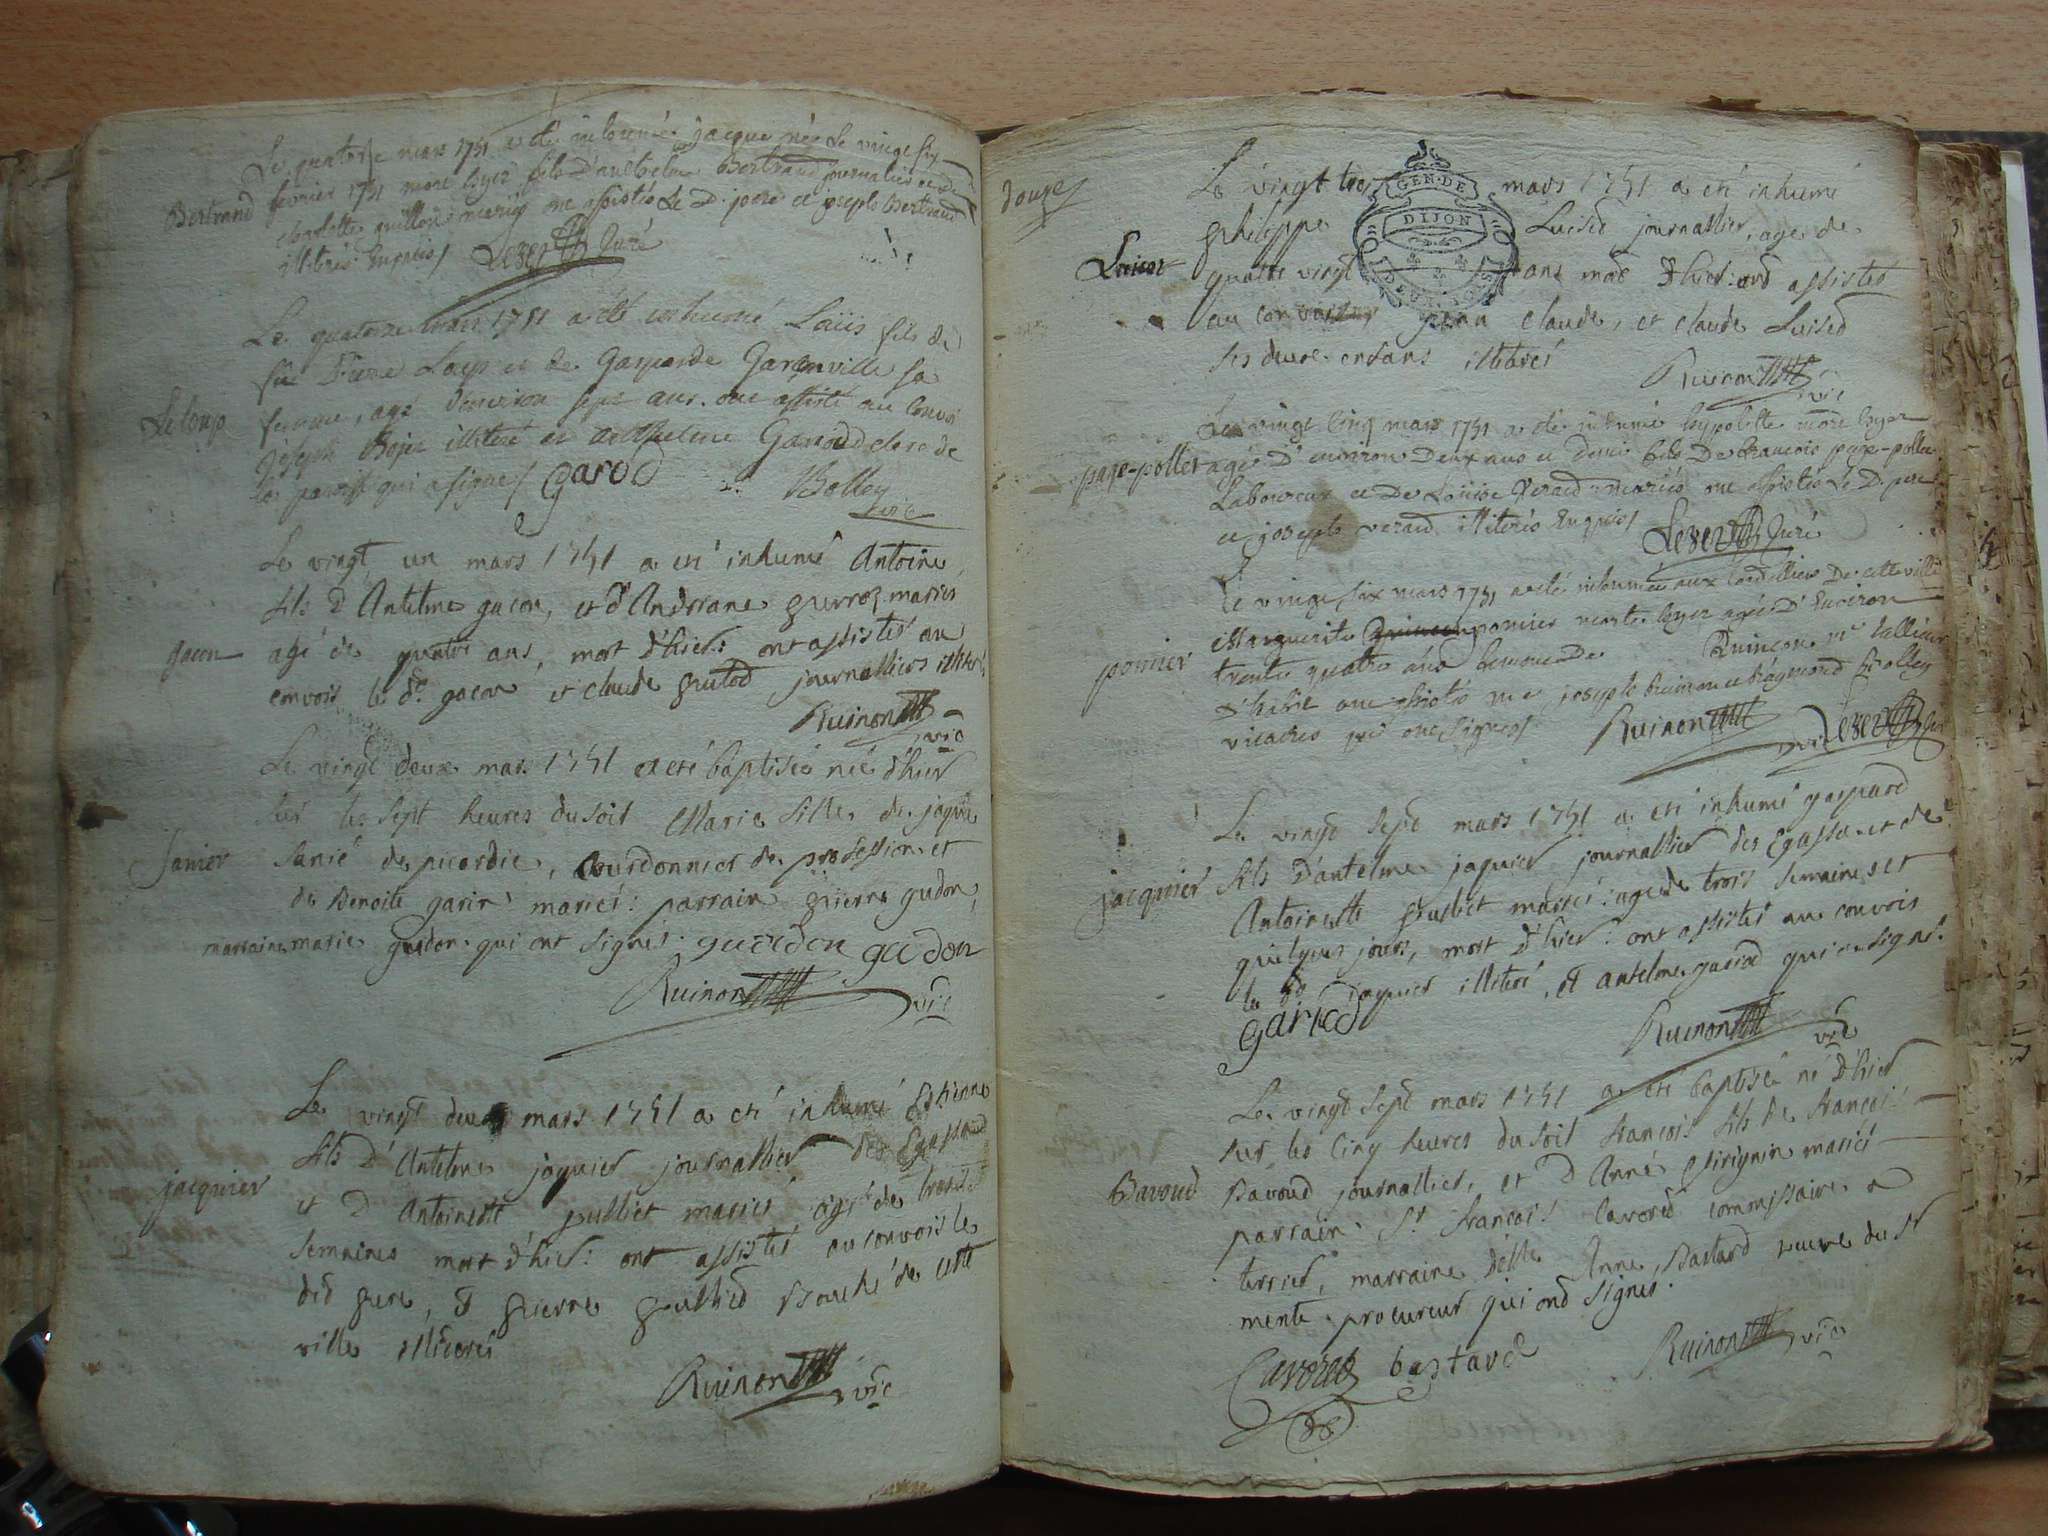 Le quatorze mars 1751 a été inhumé jacque née Le vingt six
Bertrand
fevrier 1751 mort hyer fils D'anthelme Bertrand journalier et de
charlotte guillon mariés ont assistés Le D. pere et joseph Bertrand
illiterés Enquis Curé
Le quatorze mars 1751 a été inhumé Loüis fils de
feu Pierre Loup et de Gasparde Garonville sa
Le loup
femme, agé d'environ sept ans. ont assisté au convoi
Joseph illiteré et Anthelme Garoud clerc de
la paroisse qui a signé garod
Bolley
vic
Le vingt un mars 1751 a eté inhumé Antoine
fils d'Antelme gacon, et d'Andreane mariés
gacon
agé de quatre ans, mort d'hier: ont assistés au
convois le d. gacon et claude journalliers illiterés
Ruinon
vic
Le vingt deux mars 1751 a eté baptisée née d'hier
sur les sept heures du soit Marie fille de jaque
Janier
Janié de picardie, de profession et
de Benoite garin mariés: parrain pierre gudon,
marraine marie gudon qui ont signés. gueidon gudon
Ruinon vic
Le vingt deux mars 1751 a eté inhumé Ethienne
fils d'Antelme jaquier journallier des Egassau
jacquier
et d'Antoinette pulliet mariés agé de trois
semaines mort d'hier: ont assistés au convois le
did pere, et pierre de cette
ville illiterés
Ruinon vic
douze
Le vingt trois mars 1751 a eté inhumé
GEN. DE
DIJON
philippe Luised journallier, age de
Luiset
quatre vingt ans mod d'hier: ond assistés
au convois jean claude, et claude Luised
ses deux enfans illiterés
Ruinon
vic
Le vingt cinq mars 1751 a été inhumé hypolitte mort hyer
page-pollet
agé D'environ Deux ans et demi fils De francois page-pollet
Laboureur et De Loüise Veraud mariés ont assistés Le D. pere
et joseph veraud illiterés Enquis Curé
Le vingt six mars 1751 a eté inhumée aux Cordelliers De cette ville
Marguerite pomier morte hyer agée D'Environ
pomier
trente quatre ans femme de Quincon me tallieur
D'habit ont assistés me joseph Ruinon et Raymond Bolley
vicaires qui ont signés Ruinon vic
Le vingt sept mars 1751 a eté inhumé gaspard
jacquier
fils D'antelme jaquier journallier des Egassau et de
Antoinette pulliet mariés: age de trois semaines et
quelques jours, mort d'hier: ont assistés au convois
le dd jaquier illiteré, et antelme gariod qui a signé.
gariod
Ruinon vic
Le vingt sept mars 1751 a eté baptisé né d'hier
sur les cinq heures du soit francois fils de francois
Bavoud
Bavoud journallier, et d'Anne mariés
parrain Sr francois Caverod commissaire a
terrier, marraine delle Anne Bastard veuve du Sr
mente procureur qui ond signés.
Caverod bastard Ruinon vic